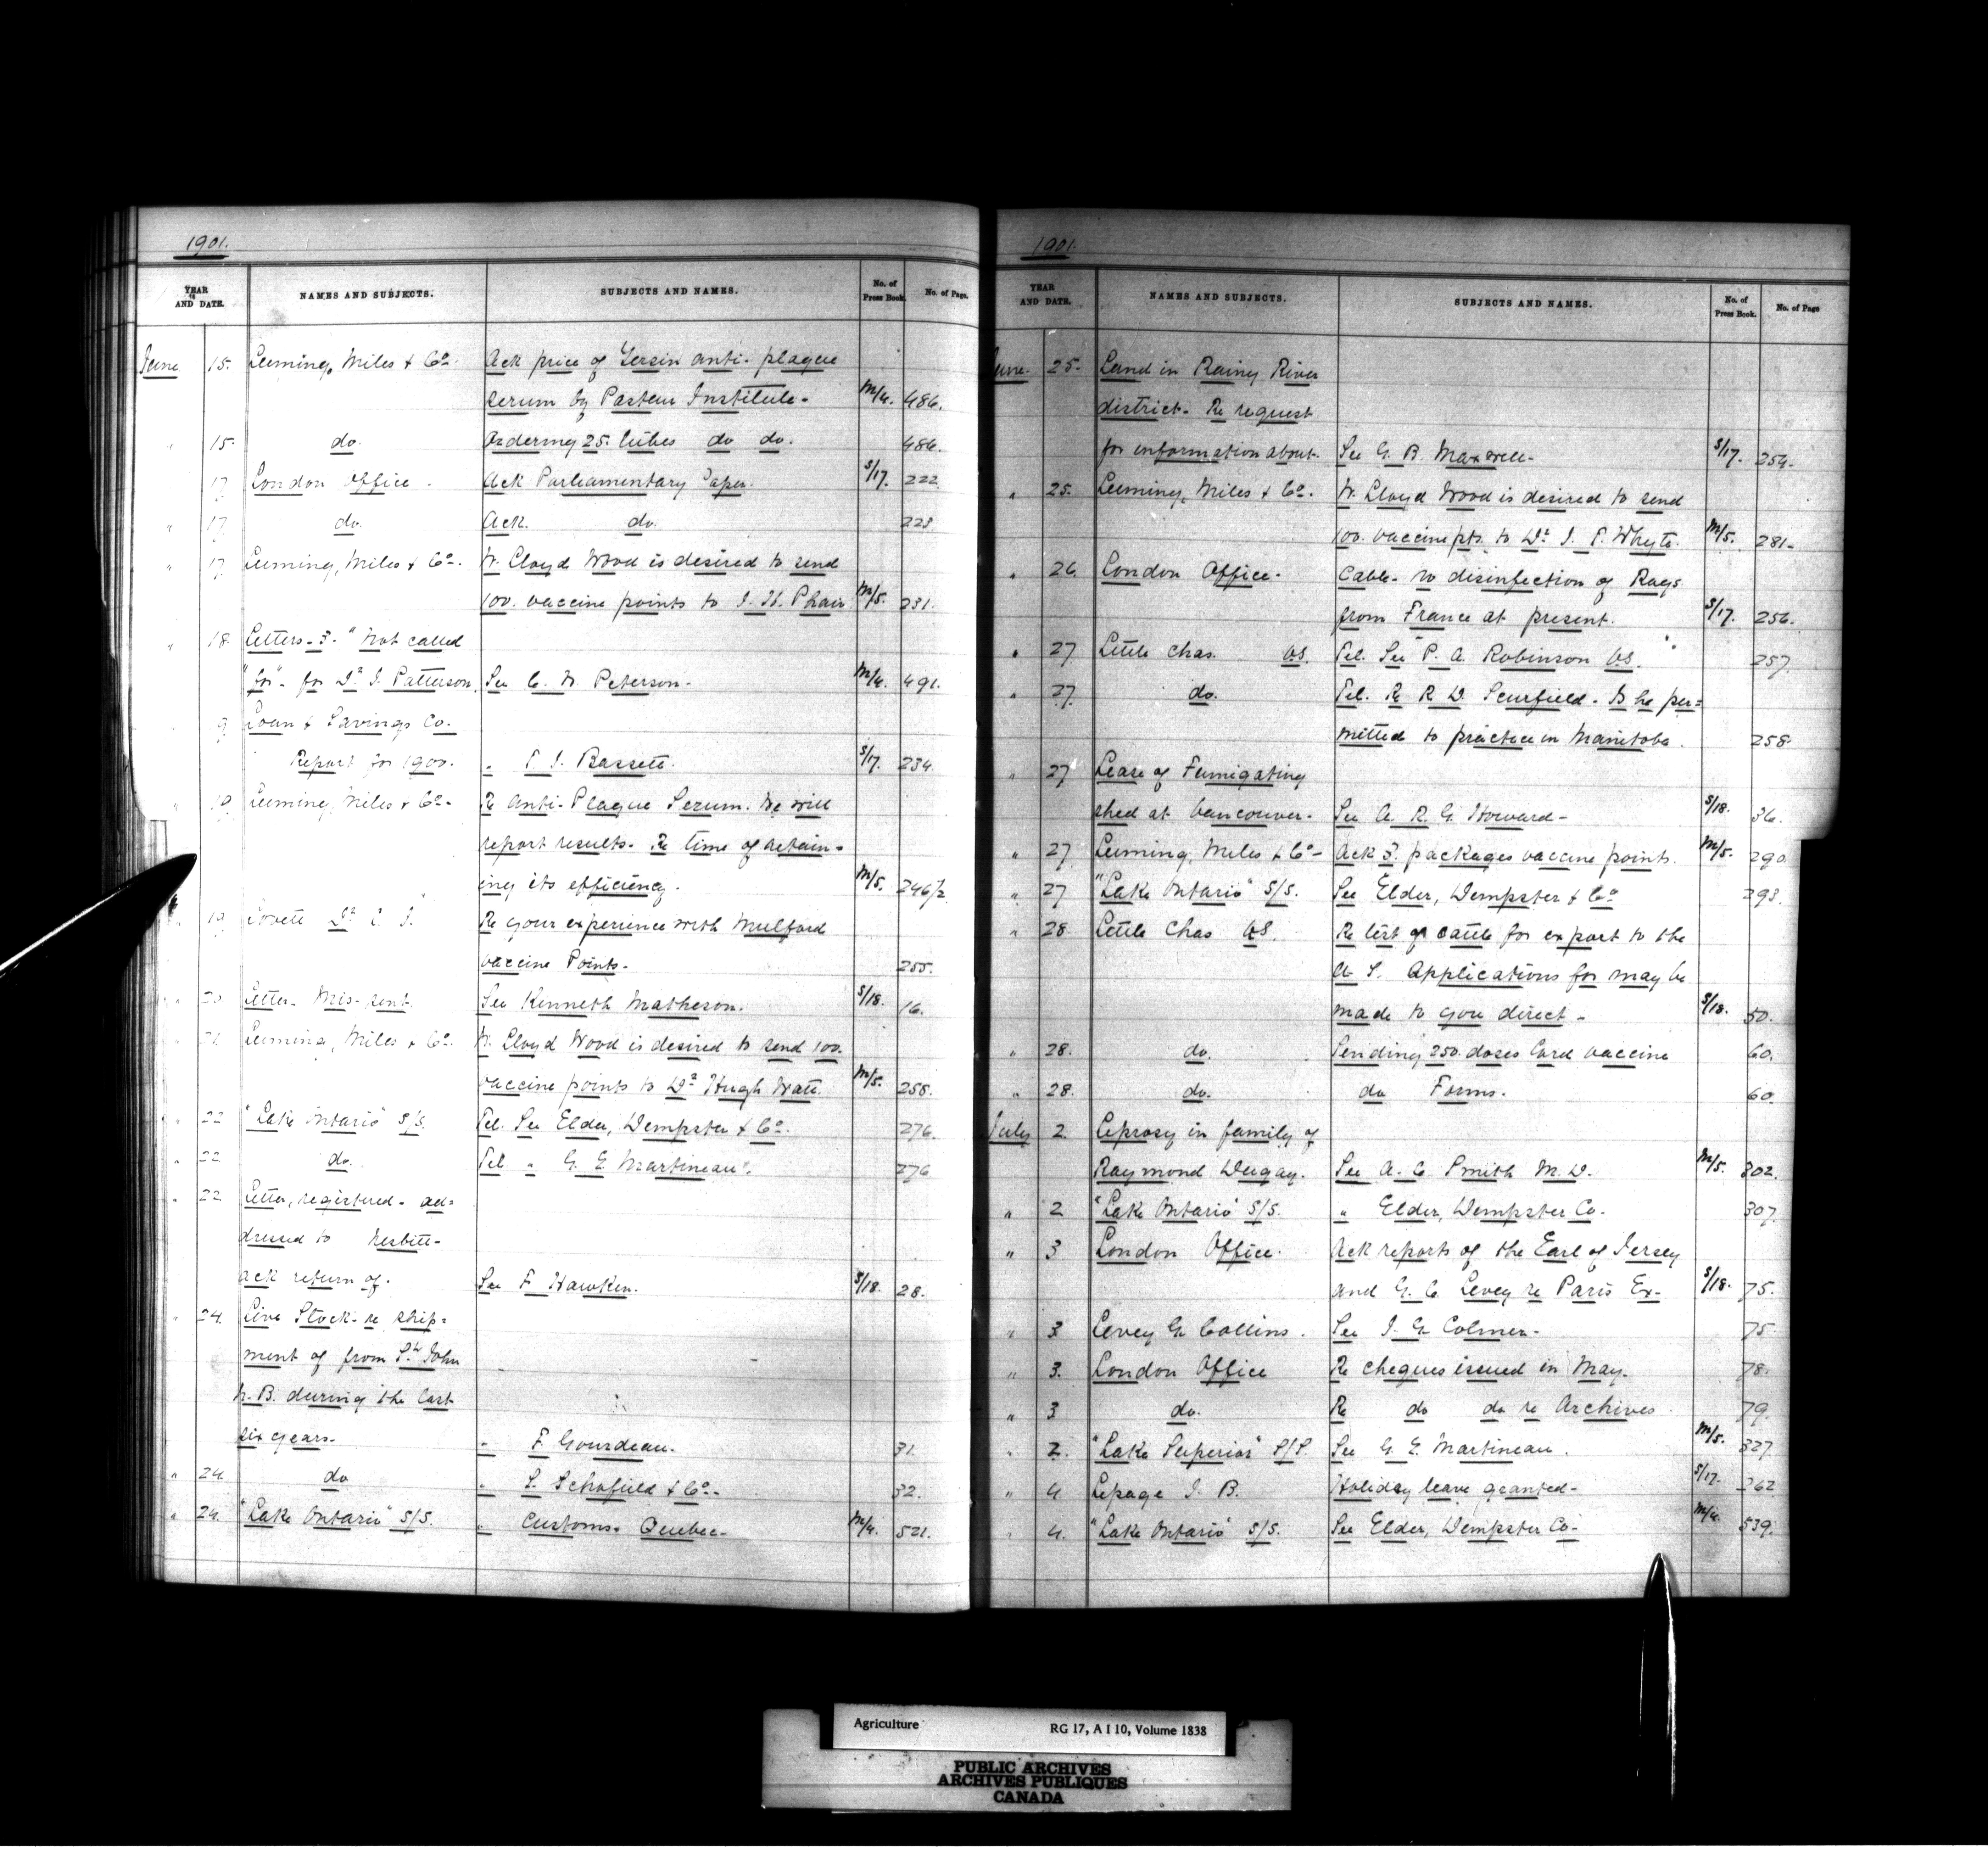 1901.
YEAR AND DATE. NAMES AND SUBJECTS. SUBJECTS AND NAMES. No. of Press Book. No. of Page.
June 15. Leeming, Miles & Co. Ack price of Yersin anti-plague
serum by Pasteur Institute- M/4. 486.
" 15. do. Ordering 25. tubes do do. 486.
17 London Office - Ack Parliamentary Paper. S/17. 222
" 17 do. Ack. do. 223
" 17 Leeming, Miles & Co. W. Lloyd Wood is desired to send
100. vaccine points to J. H. Phair M/5. 231.
" 18 Letters-3- "Not called
"for"- for Dr J. Patterson. See C. W. Peterson- M/4. 491.
Loan & Savings Co.
Report for 1900. " T. J. Bassett. S/17. 234.
" 19 Leeming, Miles & Co- Re Anti-Plague Serum. We will
report results. Re time of retain-
ing its efficiency. M/5. 246½
" 19 Lovett Dr Re your experience with Mulford
vaccine Points- 255.
" 20 Letter- Mis-sent. See Kenneth Matheson. S/18. 16.
" 21 Leeming, Miles & Co. W. Lloyd Wood is desired to send 100.
vaccine points to Dr Hugh Watt. M/5. 258.
" 22 "Lake Ontario" S/S. Tel. See Elder, Dempster & Co. 276.
" 22. do. Tel " G. E Martineau. 276
" 22 Letter, registered- ad=
dressed to Nesbitt-
ack return of. See F. Hawken. S/18. 28.
" 24. Live Stock- re ship=
ment of from St. John
N.B. during the last
six years- " F. Gourdeau. 31.
" 24. do " S. Schofield & Co- 32.
" 24. "Lake Ontario" S/S. " Customs. Quebec- M/4. 521.
1901.
YEAR AND DATE. NAMES AND SUBJECTS. SUBJECTS AND NAMES. No. of Press Book. No. of Page
June. 25. Land in Rainy River
district- Re request
for information about- See G. B. Maxwell- S/17. 254.
" 25. Leeming, Miles & Co. W. Lloyd Wood is desired to send
100. vaccine pts. to Dr J. T. Whyte. M/5. 281-
" 26. London Office- Cable- no disinfection of Rags
from France at present. S/17. 256.
" 27 Little Chas. VS. Tel. See P. A. Robinson VS. 257
" 27. do. Tel. Re R D. Scurfield. Is he per=
mitted to practice in Manitoba. 258
" 27 Lease of Fumigating
shed at Vancouver- See A. R. G. Howard- S/18. 36.
" 27. Leeming, Miles & Co- Ack 3. packages vaccine points. M/5. 290
" 27 "Lake Ontario" S/S. See Elder, Dempster & Co 293.
" 28. Little Chas VS. Re test of cattle for export to the
U S. Applications for may be
made to you direct- S/18. 50.
" 28. do. Sending 250. doses Cord vaccine 60.
" 28. do. do Forms. 60.
July 2. Leprosy in family of
Raymond Dugay. See A. C. Smith M.D. M/5. 302.
" 2 "Lake Ontario" S/S. " Elder, Dempster Co. 307.
" 3 London Office. Ack reports of the Earl of Jersey
and G. C. Levey re Paris Ex- S/18. 75.
" 3 Levey G. Collins. See J. G. Colmer- 75
" 3. London Office Re cheques issued in May. 78.
" 3 do. Re do do re Archives. 79.
" 2. "Lake Superior" S/S. See G. E. Martineau. M/5. 327
" 4 Lepage J. B. Holiday leave granted- S/17. 262
" 4. "Lake Ontario" S/S. See Elder, Dempster Co- M/4. 539.
Agriculture RG 17, A I 10, Volume 1838
PUBLIC ARCHIVES
ARCHIVES PUBLIQUES
CANADA